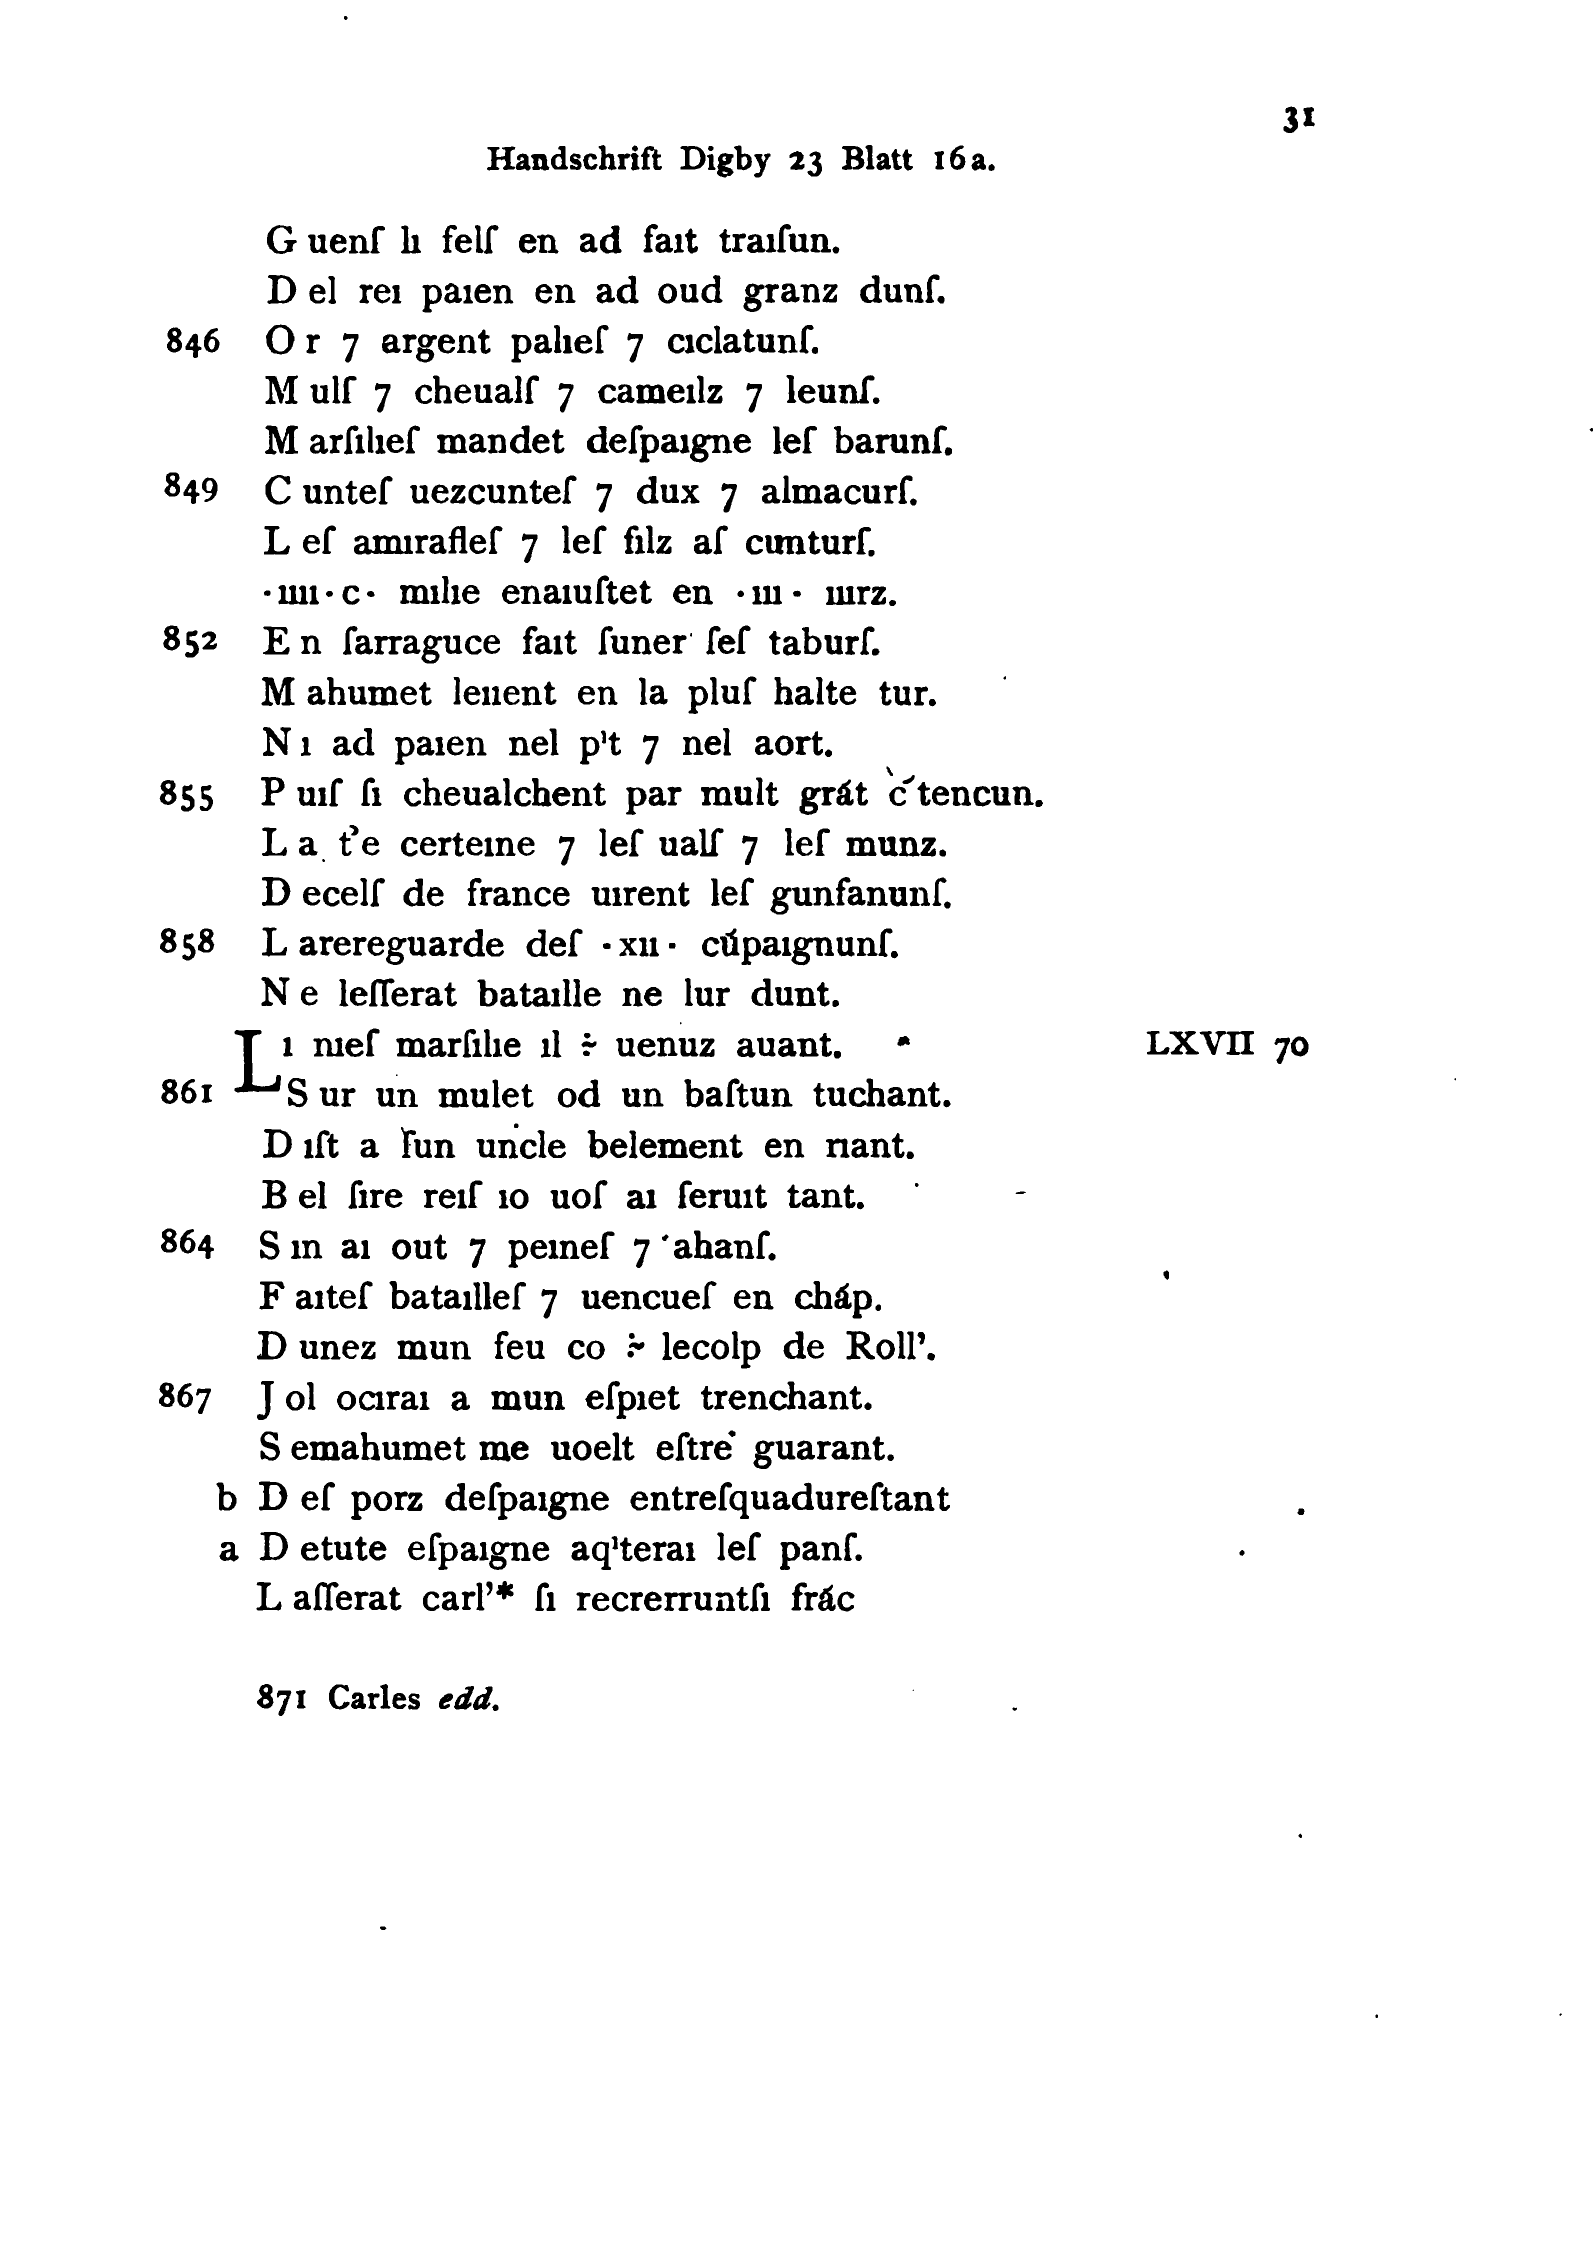 31
Handschrift Digby 23 Blatt 16a.
G uenſ lı felſ en ad faıt traıſun.
D el reı paıen en ad oud granz dunſ.
846 O r 7 argent palıeſ 7 cıclatunſ.
M ulſ 7 cheualſ 7 cameılz 7 leunſ.
M arſılıeſ mandet deſpaıgne leſ barunſ.
849 C unteſ uezcunteſ 7 dux 7 almacurſ.
L eſ amırafleſ 7 leſ filz aſ cunturſ.
·ıııı·c· mılıe enaıuſtet en ·ııı· ıurz.
852 E n ſarraguce faıt ſuner ſeſ taburſ.
M ahumet leuent en la pluſ halte tur.
N ı ad paıen nel pˈt 7 nel aort.
855 P uıſ ſı cheualchent par mult grát c̄tencun.
L a t’e certeıne 7 leſ ualſ 7 leſ munz.
D ecelſ de france uırent leſ gunfanunſ.
858 L arereguarde deſ ·xıı· cúpaıgnunſ.
N e leſſerat bataılle ne lur dunt.
L ı nıeſ marſılıe ıl ÷ uenuz auant. LXVII 70
861 S ur un mulet od un baſtun tuchant.
D ıſt a ſun uncle belement en rıant.
B el ſıre reıſ ıo uoſ aı ſeruıt tant.
864 S ın aı out 7 peıneſ 7 ahanſ.
F aıteſ bataılleſ 7 uencueſ en cháp.
D unez mun feu co ÷ lecolp de Roll’.
867 J ol ocıraı a mun eſpıet trenchant.
S emahumet me uoelt eſtre guarant.
b D eſ porz deſpaıgne entreſquadureſtant
a D etute eſpaıgne aqˈteraı leſ panſ.
L aſſerat carl’* ſı recrerruntſı frác
871 Carles edd.